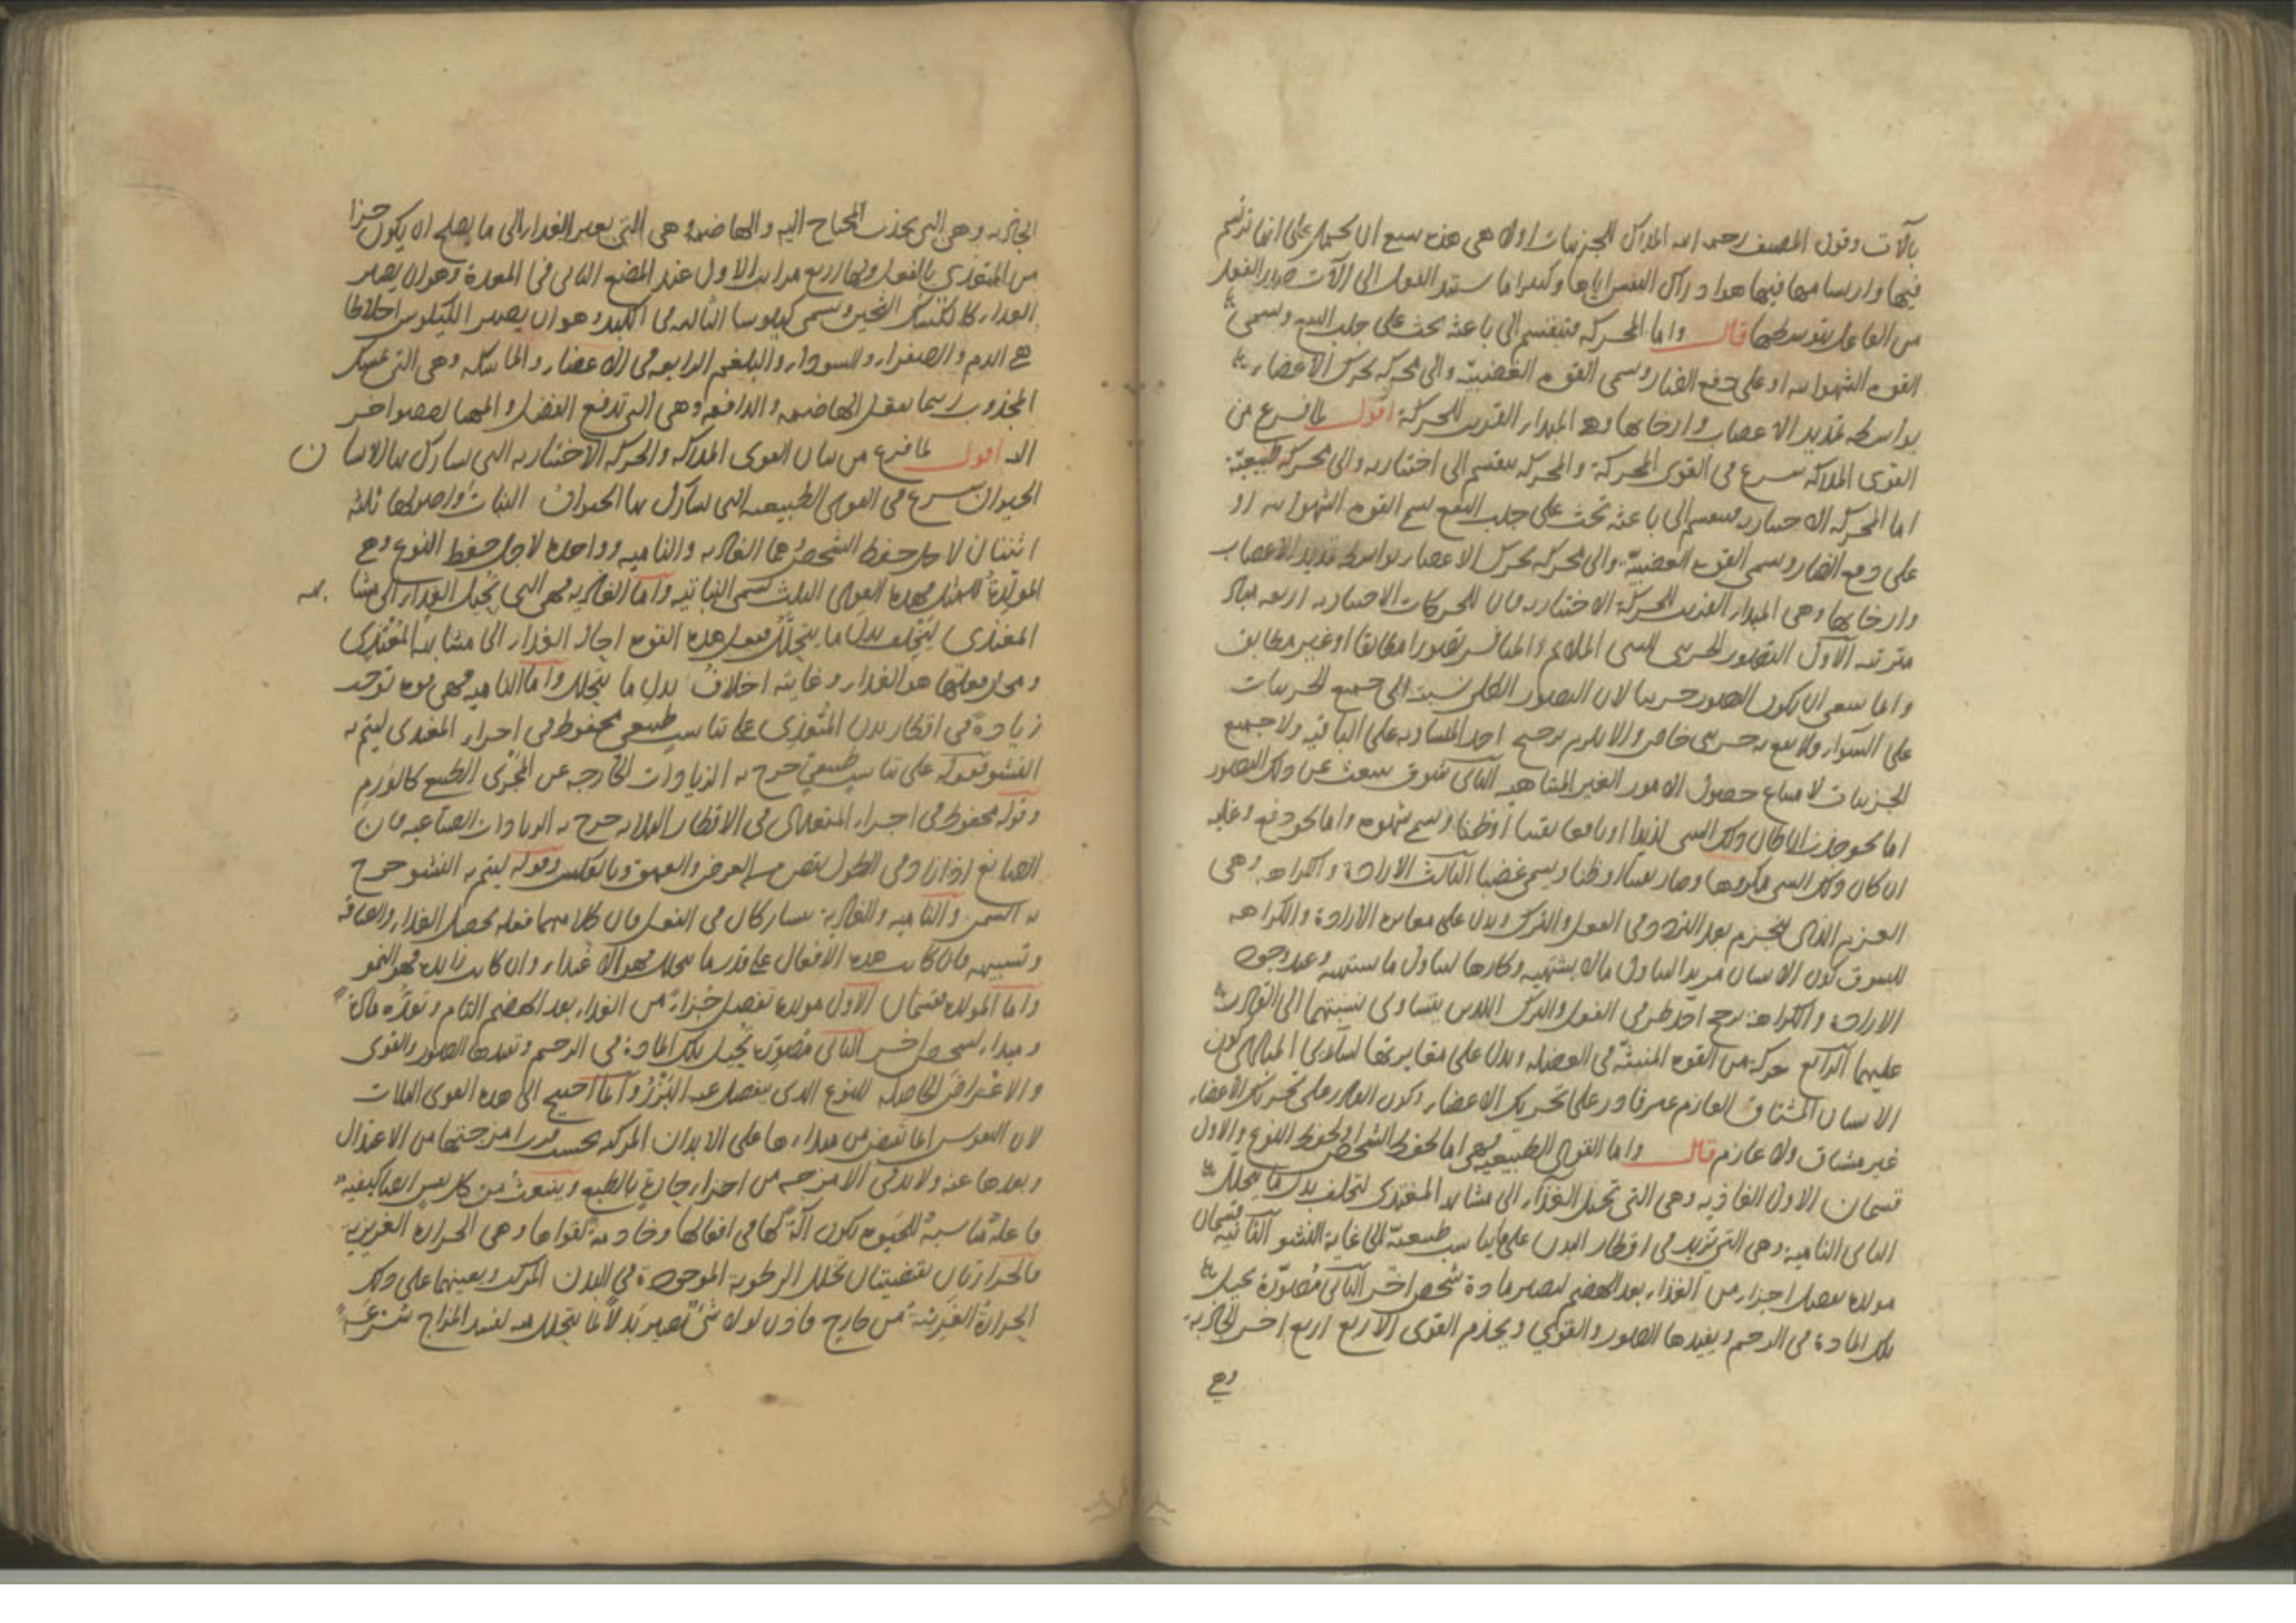 بآلات وقول المصنف رحمه الله المدرك للجزئيات اولا هي هذه سبع ان يحمل على انها ترتسم
فيها وارتسامها فيها هو ادراك النفس اياها وكثيرا ما يستند الفعل الى الآلات صدور الفعل
من الفاعل بتوسطها قال واما المحركة فتنقسم الى باعثة تحث على جلب النفع وتسمى
القوة الشهوانية او على دفع الضار وتسمى القوة الغضبية والى محركة تحرك الاعضاء
بواسطة تمديد الاعصاب وارخائها وهي المبدأ القريب للحركة اقول لما فرغ من
القوى المدركة شرع في القوى المحركة والمحركة تنقسم الى اختيارية والى محركة طبيعية
اما المحركة الاختيارية فتنقسم الى باعثة تحث على جلب النفع تسمى القوة الشهوانية او
على دفع الضار وتسمى القوة الغضبية والى محركة تحرك الاعضاء بواسطة تمديد الاعصاب
وارخائها وهي المبدأ القريب للحركة الاختيارية فان للحركات الاختيارية اربعة مبادئ
مترتبة الاول التصور الجزئي للشيء الملائم والمنافر تصورا مطابقا او غير مطابق
وانما ينبغي ان يكون التصور جزئيا لان التصور الكلي نسبته الى جميع الجزئيات
على السواء ولا يقع به جزئي خاص والا يلزم ترجيح احد المتساوية على الباقية ولا جميع
الجزئيات لامتناع حصول الامور الغير المتناهية الثاني شوق ينبعث عن ذلك التصور
اما نحو جذب ان كان ذلك الشيء لذيذا او نافعا يقينا او ظنا ويسمى شهوة واما نحو دفع وغلبة
ان كان ذلك الشيء مكروها وضارا يقينا او ظنا ويسمى غضبا الثالث الارادة والكراهة وهي
العزم الذي ينجزم بعد التردد في الفعل والترك ويدل على مغايرة الارادة والكراهة
للشوق كون الانسان مريدا لتناول ما لا يشتهيه وكارها لتناول ما يشتهيه وعند وجود
الارادة والكراهة يترجح احد طرفي الفعل والترك اللذين يتساوى نسبتهما الى القادر
عليهما الرابع حركة من القوة المنبثة في العضلة ويدل على مغايرتها لسائر المبادئ كون
الانسان المشتاق العازم غير قادر على تحريك الاعضاء وكون القادر على تحريك الاعضاء
غير مشتاق ولا عازم قال واما القوى الطبيعية فهي اما لحفظ الشخص او لحفظ النوع والاول
قسمان الاول الغاذية وهي التي تحيل الغذاء الى مشابهة المغتذي لتخلف بدل ما يتحلل
الثاني النامية وهي التي تزيد في اقطار البدن على تناسب طبيعية الى غاية النشو الثانية قسمان
مولدة تفصل اجزاء من الغذاء بعد الهضم لتصير مادة شخص اخر الثاني مصورة تحيل
تلك المادة في الرحم وتفيدها الصور والقوى ويخدم القوى الاربع اربع اخر الجاذبة
وهي
الجاذبة وهي التي تجذب المحتاج اليه والهاضمة وهي التي تغير الغذاء الى ما يصلح ان يكون جزءا
من المغتذي بالفعل ولها اربع مراتب الاول عند المضغ الثاني في المعدة وهو ان يصير
الغذاء كالكشك الثخين ويسمى كيلوسا الثالثة في الكبد وهو ان يصير الكيلوس اخلاطا
هي الدم والصفراء والسوداء والبلغم الرابعة في الاعضاء والماسكة وهي التي تمسك
المجذوب ريثما يفعل الهاضمة والدافعة وهي التي تدفع الفضل والمهيا لعضو اخر
اليه اقول لما فرغ من بيان القوى المدركة والمحركة الاختيارية التي يشارك بها الانسان
الحيوان شرع في القوى الطبيعية التي يشارك بها الحيوان النبات واصولها ثلثة
اثنتان لاجل حفظ الشخص وهما الغاذية والنامية وواحدة لاجل حفظ النوع وهي
المولدة للمثل فهذه القوى الثلث تسمى النباتية واما الغاذية فهي التي تحيل الغذاء الى مشابهة
المغتذي ليخلف بدل ما يتحلل ففعل هذه القوة احالة الغذاء الى مشابهة المغتذي
ومحل فعلها هو الغذاء وغايته اخلاف بدل ما يتحلل واما النامية فهي قوة توجب
زيادة في اقطار بدن المغتذي على تناسب طبيعي محفوظ في اجزاء المغتذي ليتم به
النشو فقوله على تناسب طبيعي خرج به الزيادات الخارجة عن المجرى الطبيعي كالورم
وقوله محفوظ في اجزاء المغتذي في الاقطار الثلاثة خرج به الزيادات الصناعية فان
الصانع اذا زاد في الطول نقص من العرض والعمق وبالعكس وقوله ليتم به النشو خرج
به السمن والنامية والغاذية تتشاركان في الفعل فان كلا منهما فعله تحصيل الغذاء والصاقه
وتشبيهه فان كانت هذه الافعال على قدر ما يتحلل فهو الاغتذاء وان كانت زائدة فهو النمو
واما المولدة فقسمان الاول مولدة تفصل جزءا من الغذاء بعد الهضم التام وتعده مادة
ومبدأ لشخص اخر الثاني مصورة تحيل تلك المادة في الرحم وتفيدها الصور والقوى
والاعراض الحاصلة للنوع الذي ينفصل عنه البزر وانما احتيج الى هذه القوى الثلاث
لان النفوس انما تفيض من مبدأها على الابدان المركبة بحسب قرب امزجتها من الاعتدال
وبعدها عنه ولا بد في الامزجة من اجزاء حارة بالطبع وينبعث من كل نفس ايضا كيفية
فاعلة مناسبة للحيوة تكون آلة لها في افعالها وخادمة لقواها وهي الحرارة الغريزية
فالحرارتان تقتضيان تحلل الرطوبة الموجودة في البدن المركب ويعينهما على ذلك
الحرارة الغريبة من خارج فاذن لولا شيء يصير بدلا لما يتحلل منه لفسد المزاج بسرعة